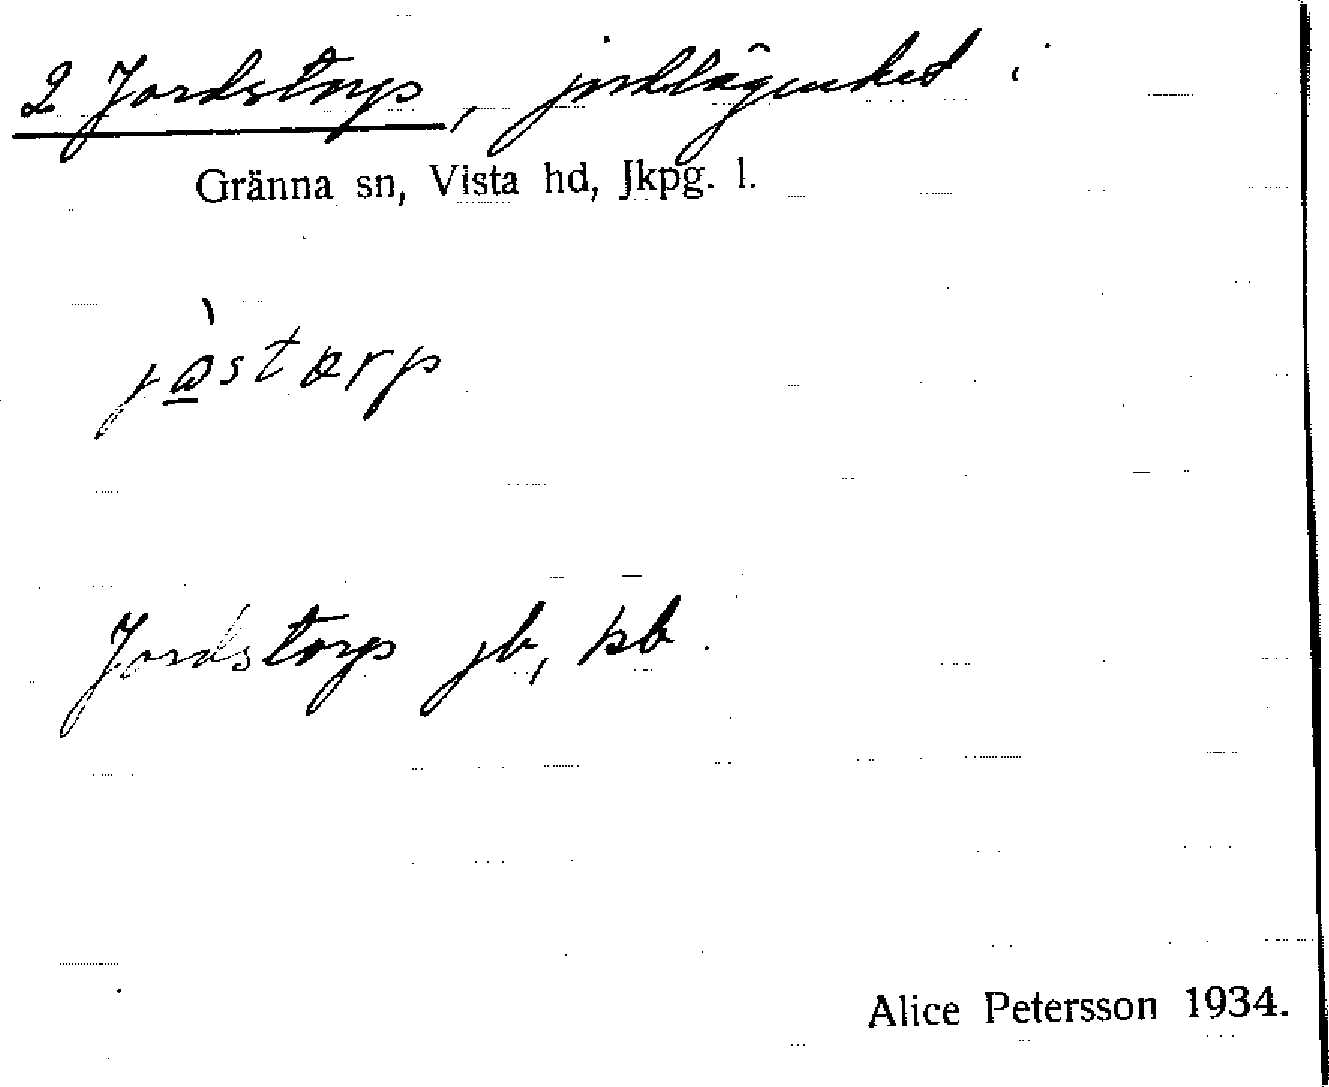 2 Jordstorp, jordlägenhet i
Gränna sn, Vista hd, Jkpg. l.
jàstorp
Jordstorp jb, kb.
Alice Petersson 1934.